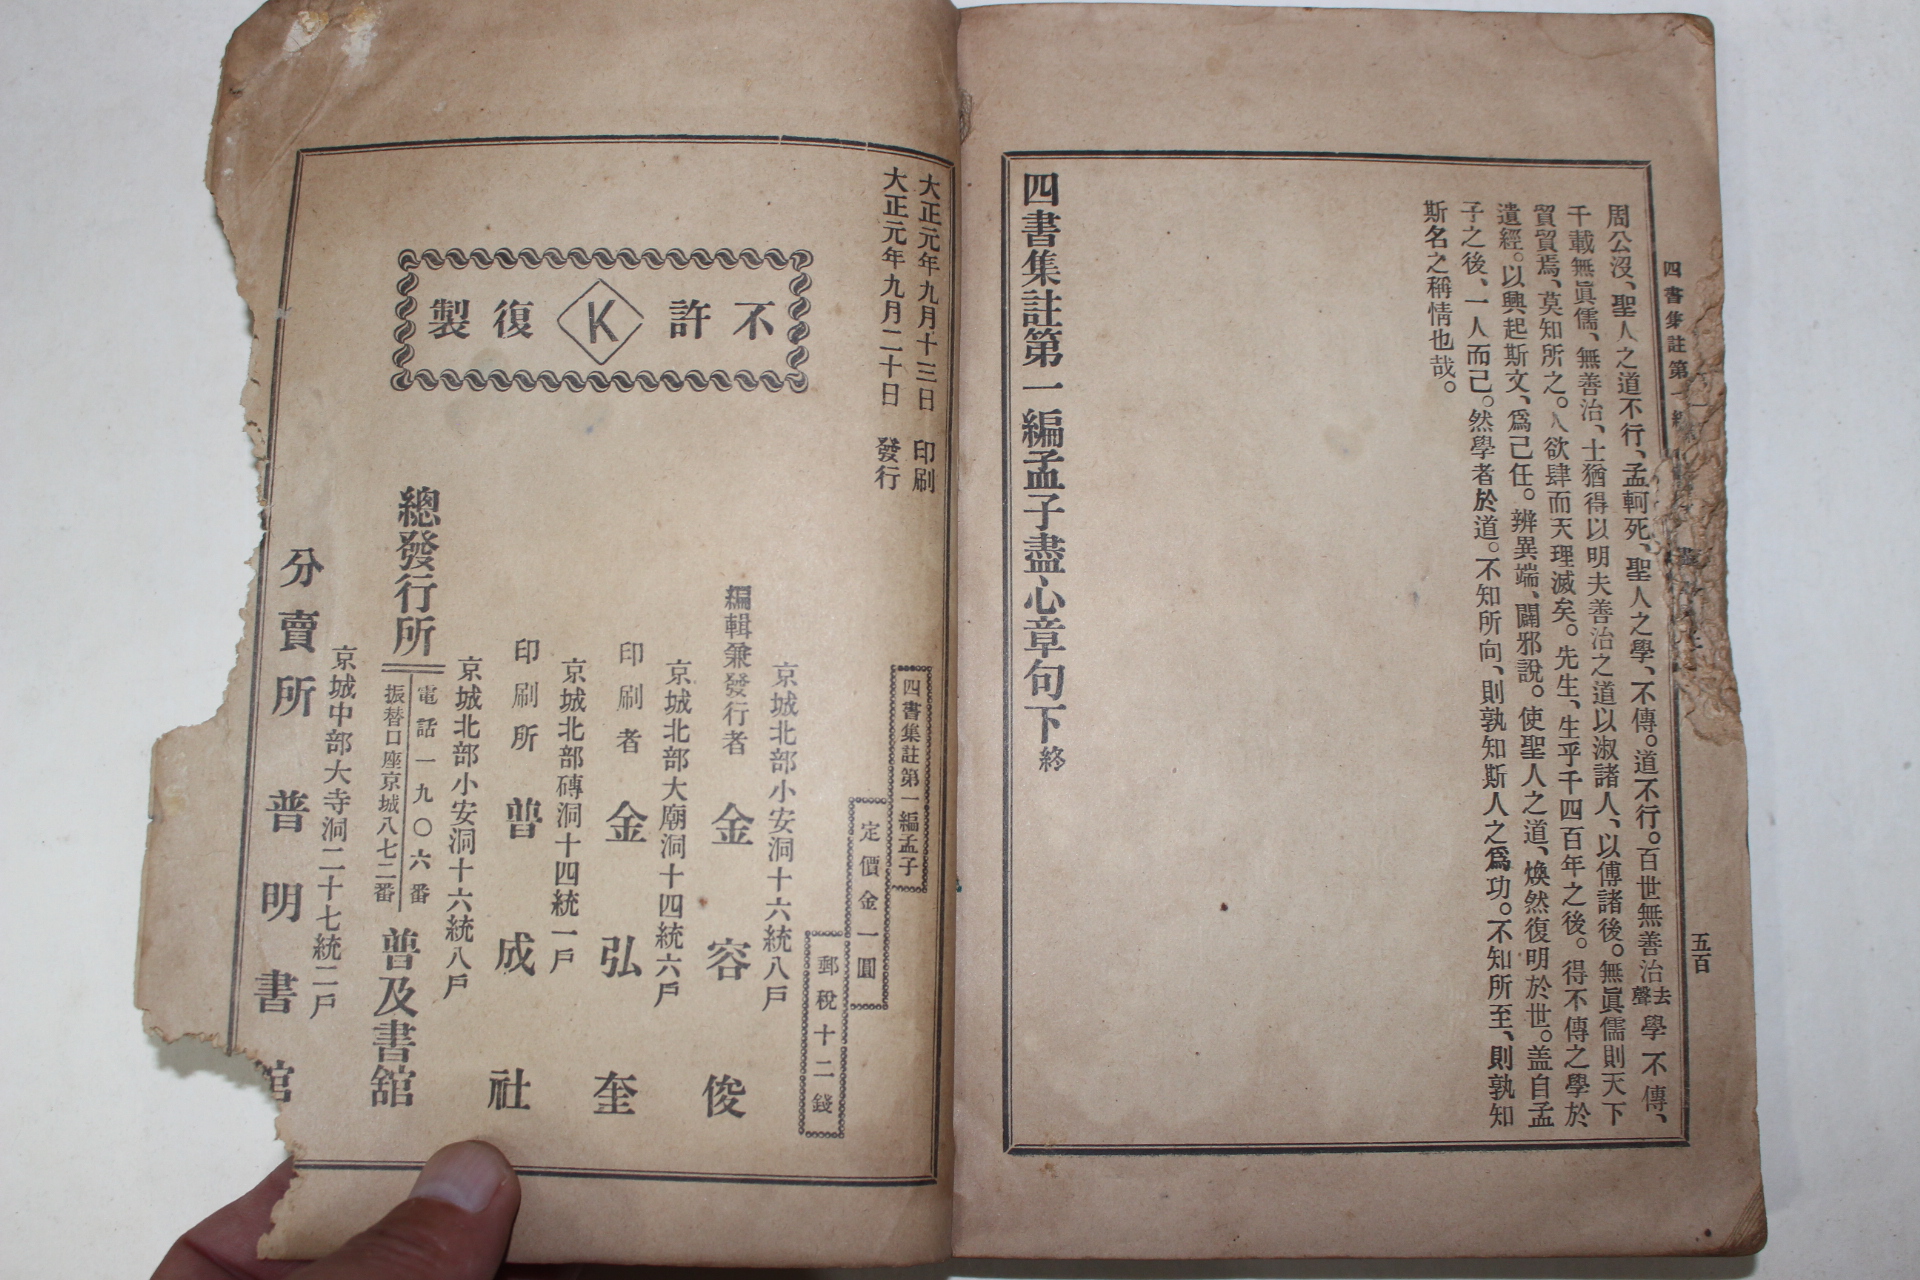 四書集註第一編
五百
周公沒、聖人之道不行、孟軻死、聖人之學、不傳。道不行。百世無善治去聲學不傳、
千載無眞儒、無善治、士猶得以明夫善治之道以淑諸人、以傳諸後。無眞儒則天下
貿貿焉、莫知所之。人欲肆而天理滅矣。先生、生乎千四百年之後。得不傳之學於
遺經。以興起斯文、爲己任。辨異端、闢邪說。使聖人之道、煥然復明於世。盖自孟
子之後、一人而已。然學者於道。不知所向、則孰知斯人之爲功。不知所至、則孰知
斯名之稱情也哉。
四書集註第一編孟子盡心章句下終
大正元年九月十三日 印刷
大正元年九月二十日 發行
四書集註第一編孟子
定價金一圓
郵稅十二錢
不許K復製
京城北部小安洞十六統八戶
編輯兼發行者 金容俊
京城北部大廟洞十四統六戶
印刷者 金弘奎
京城北部磚洞十四統一戶
印刷所 普成社
京城北部小安洞十六統八戶
總發行所
電話一九〇六番
振替口座京城八七二番
普及書舘
京城中部大寺洞二十七統二戶
分賣所 普明書舘